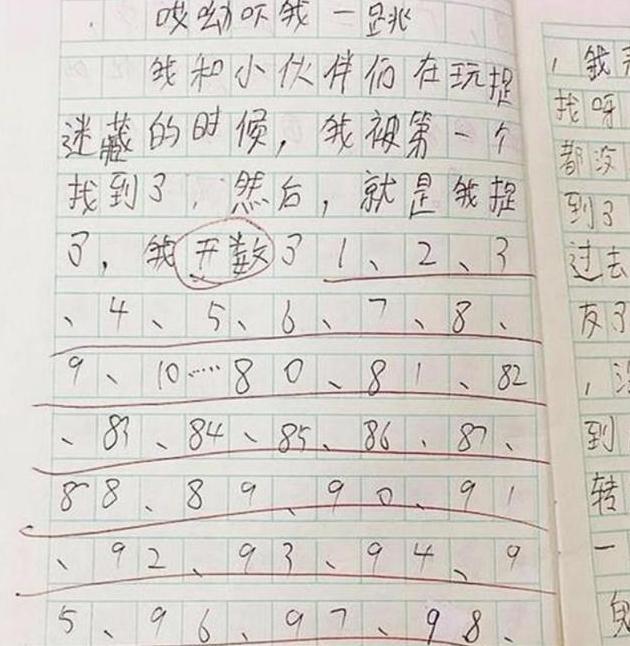 哎呦吓我一跳
我和小伙伴们在玩捉
迷藏的时候，我被第一个
找到了，然后，就是我捉
了，我开数了1、2、3
、4、5、6、7、8、
9、10……80、81、82
、83、84、85、86、87、
88、89、90、91
、92、93、94、9
5、96、97、98、
，我
找呀
都没
到了
过去
友了
，
到
转
一